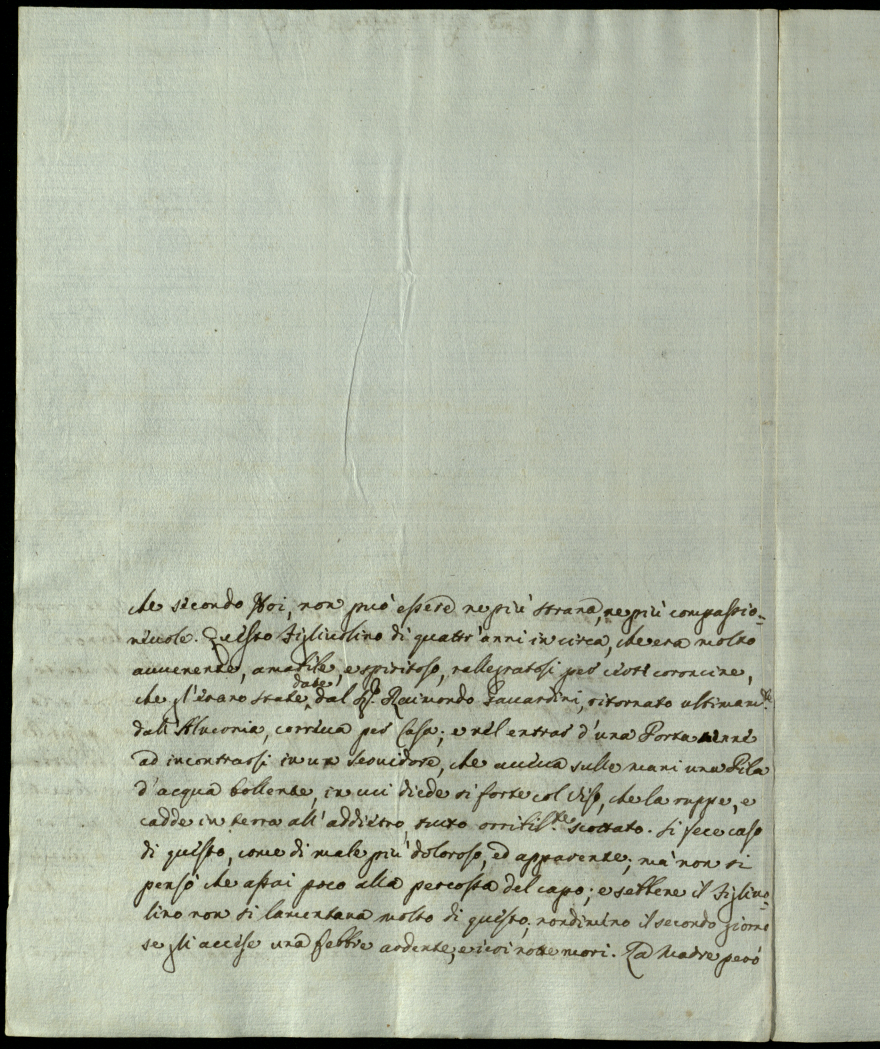 che secondo Noi, non può essere ne più strana, ne più compassio=
nevole. Questo Figliuolino di quattr'anni in circa, che era molto
avvenente, amabile, e spiritoso, rallegratosi per certe coroncine,
che gl'erano state date dal P. Raimondo Paccardini, ritornato ultimam.te
dall'Alvernia, correva per Casa; e nel entrar d'una Porta venne
ad incontrarsi in un Servidore, che aveva sulle mani una Pila
d'acqua bollente, in cui diede si forte col viso, che la ruppe, e
cadde in terra all'addietro, tutto orribil.te scottato. Si fece caso
di questo, come di male più doloroso, ed apparente; ma non si
pensò che assai poco alla percossa del capo; e sebbene il Figliuo=
lino non si lamentava molto di questo, nondimeno il secondo giorno
se gli accese una febbre ardente, e morì. La Madre però